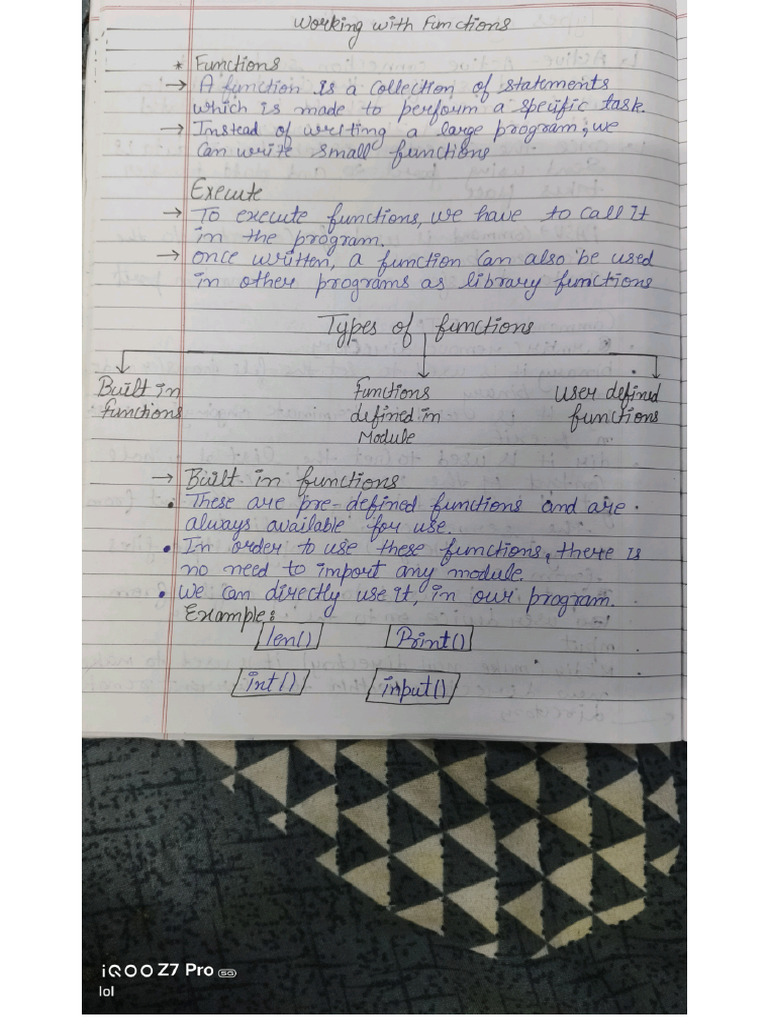 Working with Functions
* Functions
→ A function is a collection of statements
which is made to perform a specific task.
→ Instead of writing a large program, we
can write small functions
Execute
→ To execute functions, we have to call it
in the program.
→ once written, a function can also be used
in other programs as library functions
Types of functions
Built in
Functions
Functions
defined in
Module
User defined
functions
→ Built in functions
• These are pre-defined functions and are
always available for use.
• In order to use these functions, there is
no need to import any module.
• We can directly use it, in our program.
Example:
len() Print()
int() input()
iQOO Z7 Pro 5G
lol